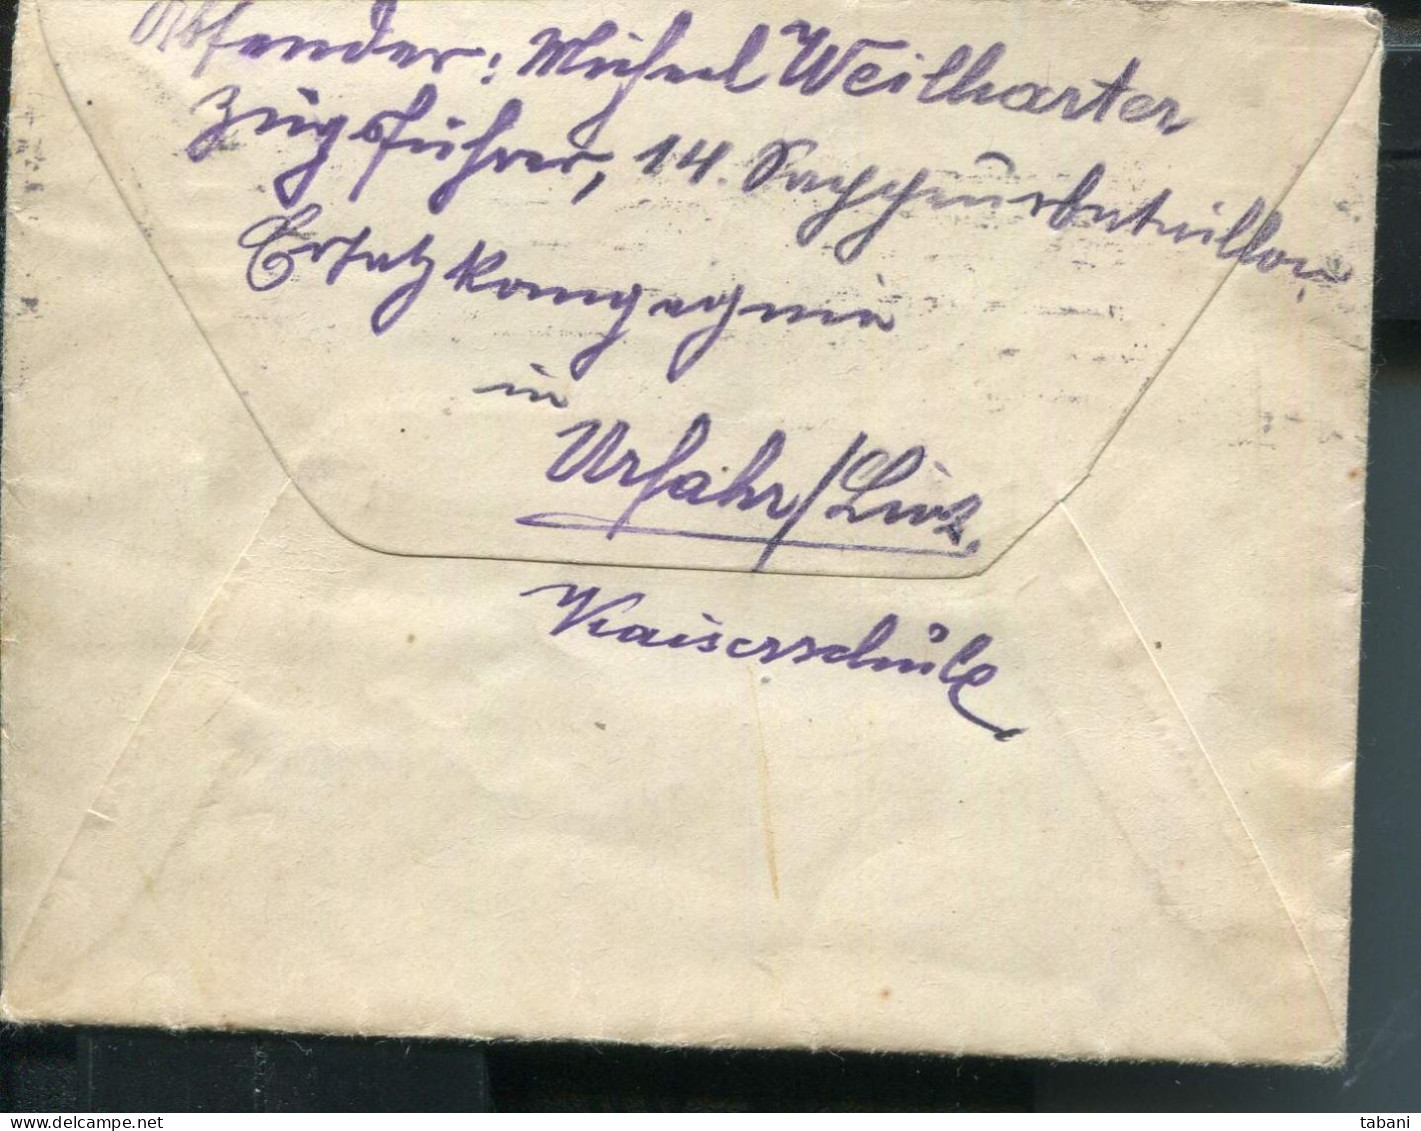 Absender: Michael Weilharter
Zugsführer, 14. Sappeurbataillon,
Ersatzkompagnie
in
Urfahr/Linz.
Kaiserschule
tabani